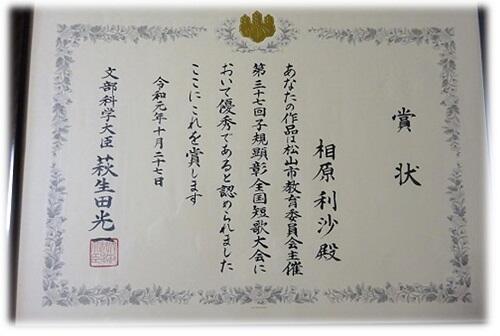 賞状
相原利沙殿
あなたの作品は松山市教育委員会主催
第三十七回子規顕彰全国短歌大会に
おいて優秀であると認められました
ここにこれを賞します
令和元年十月二十七日
文部科学大臣 萩生田光一